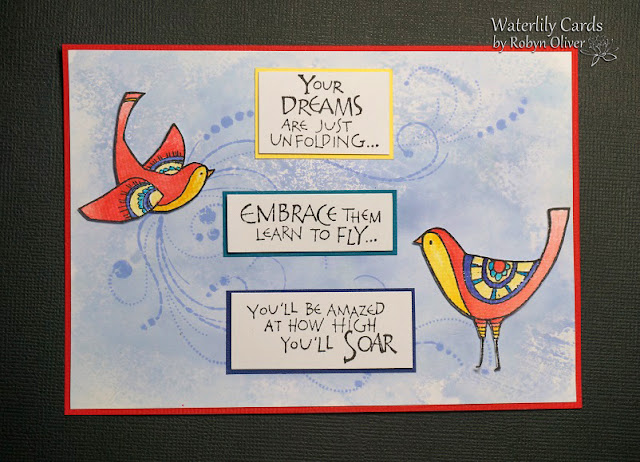 Waterlily Cards
by Robyn Oliver
YOUR
DREAMS
ARE JUST
UNFOLDING...
EMBRACE THEM
LEARN TO FLY...
YOU'LL BE AMAZED
AT HOW HIGH
YOU'LL SOAR